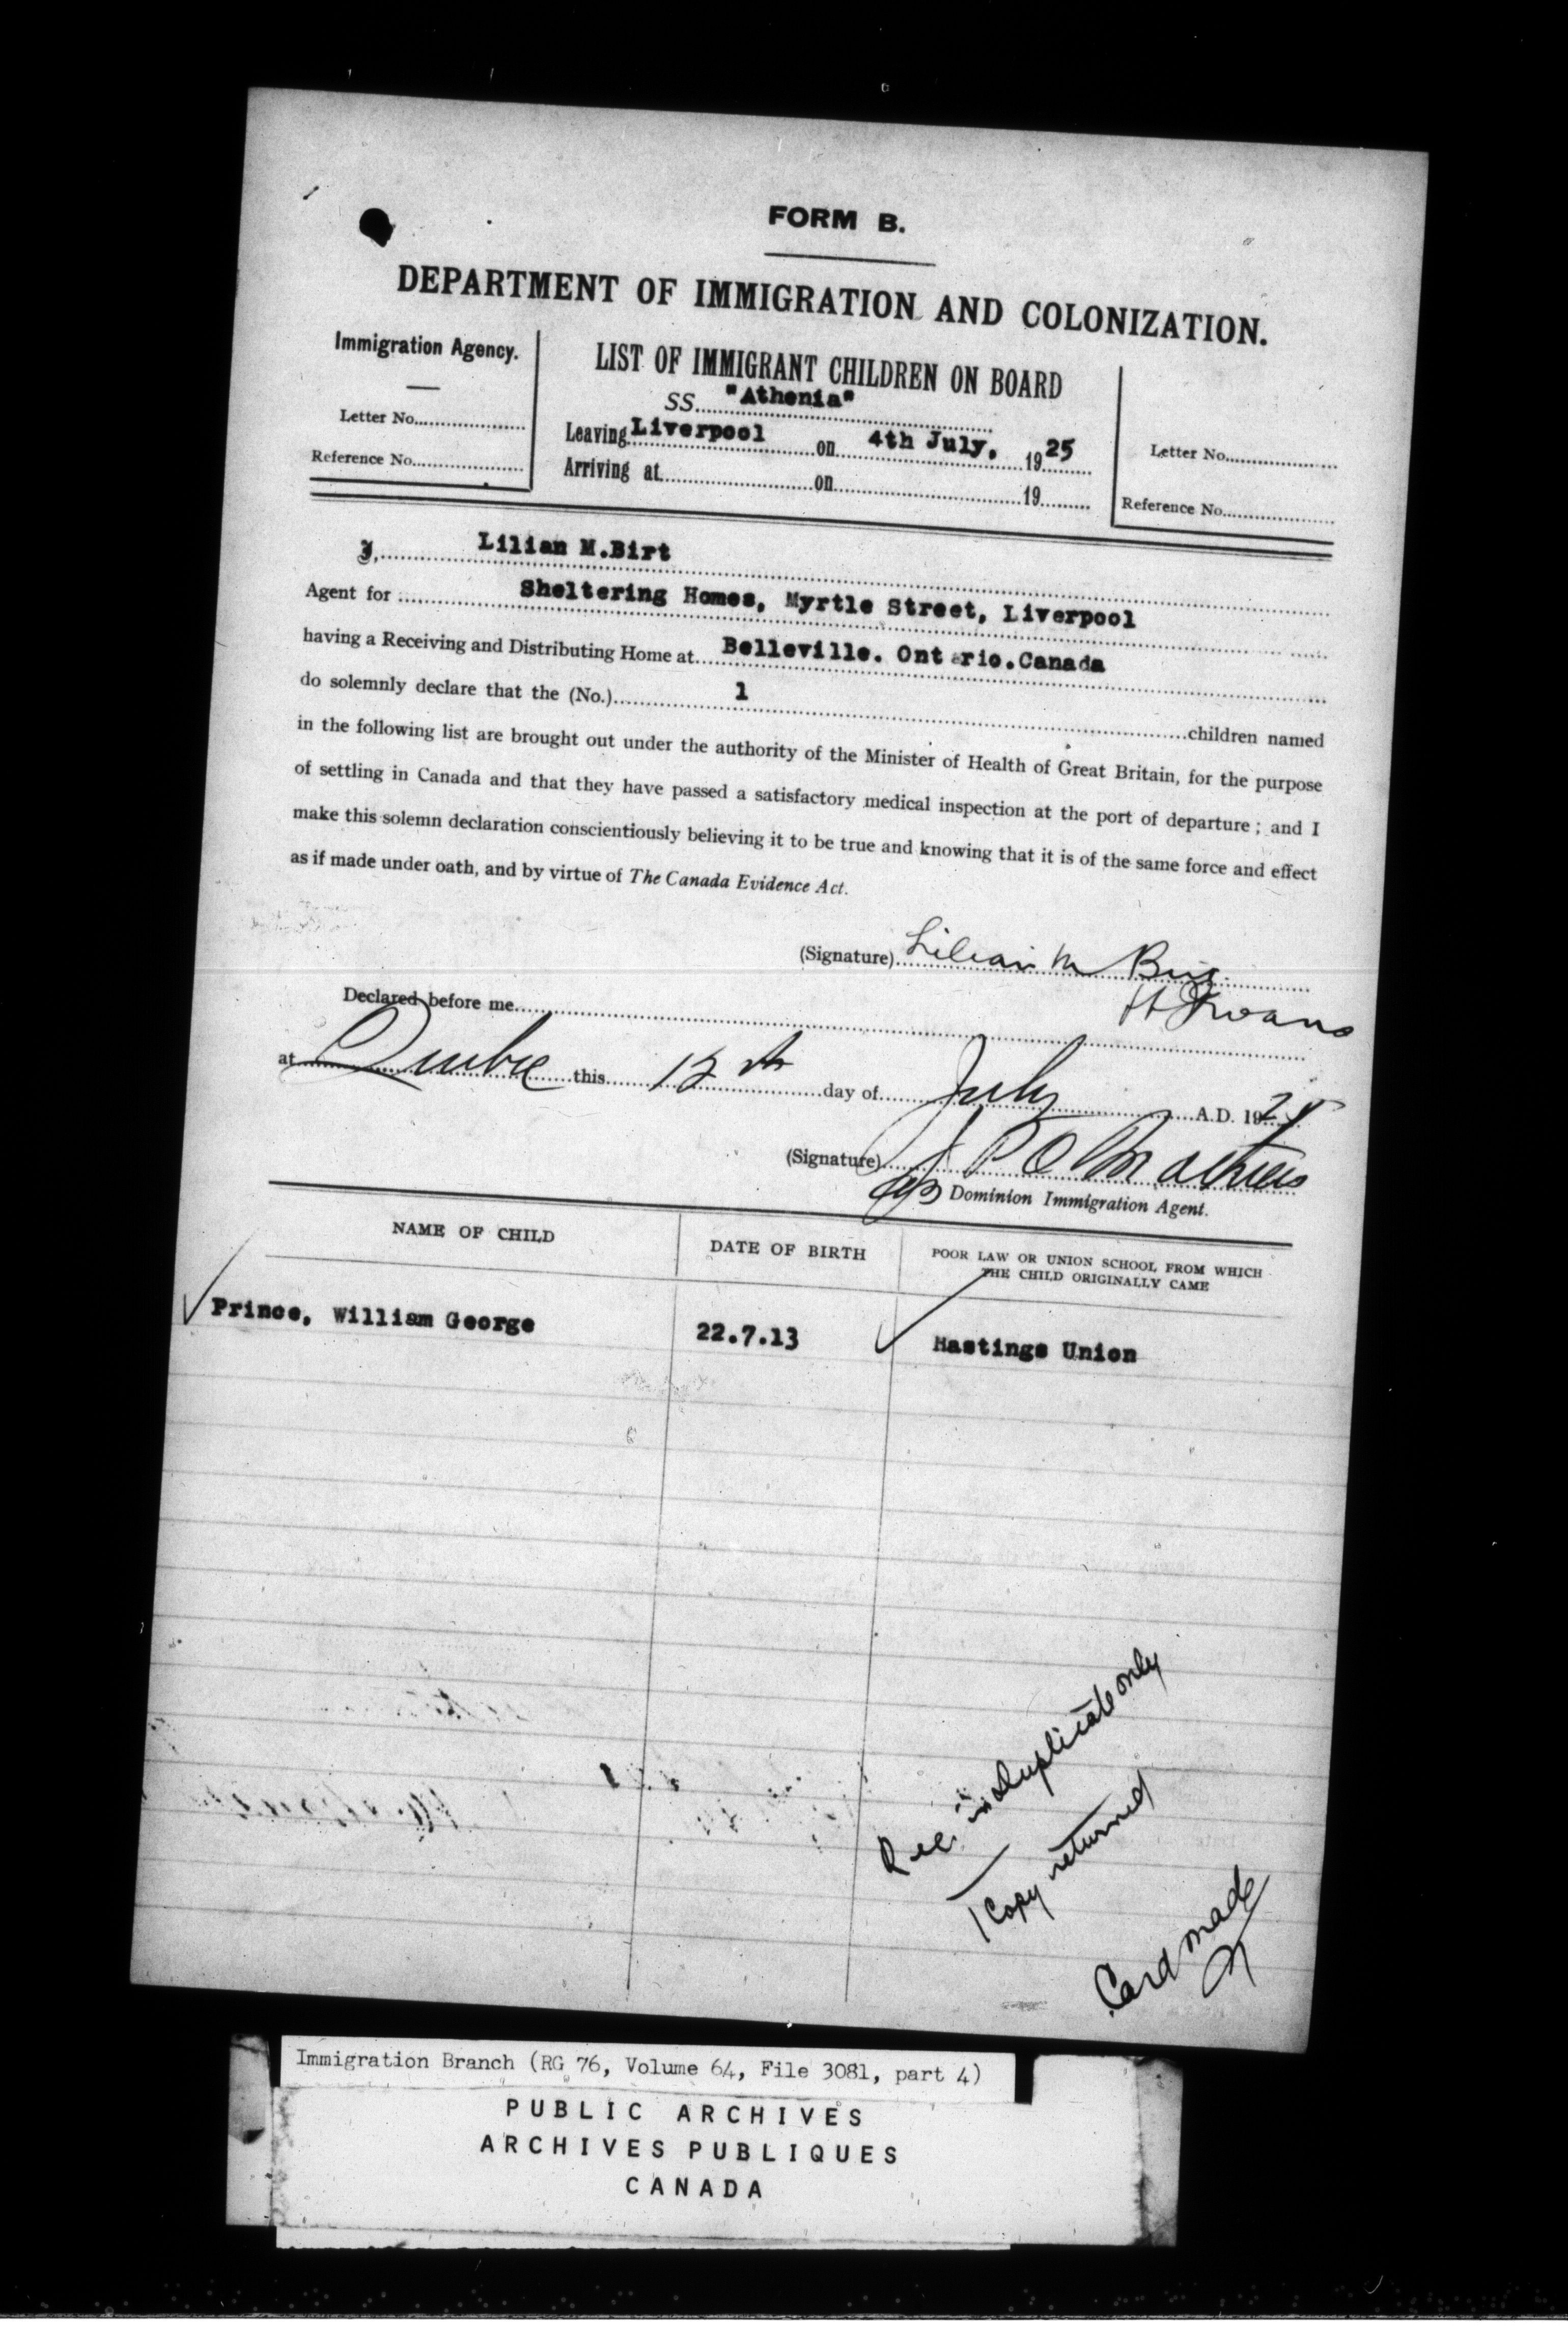 FORM B.
DEPARTMENT OF IMMIGRATION AND COLONIZATION.
Immigration Agency.
Letter No.
Reference No.
LIST OF IMMIGRANT CHILDREN ON BOARD
SS. "Athenia"
Leaving Liverpool on 4th July, 1925
Arriving at on 19
Letter No.
Reference No.
I, Lilian M.Birt
Agent for Sheltering Homes, Myrtle Street, Liverpool
having a Receiving and Distributing Home at Belleville. Ontario.Canada
do solemnly declare that the (No.) 1 children named
in the following list are brought out under the authority of the Minister of Health of Great Britain, for the purpose
of settling in Canada and that they have passed a satisfactory medical inspection at the port of departure; and I
make this solemn declaration conscientiously believing it to be true and knowing that it is of the same force and effect
as if made under oath, and by virtue of The Canada Evidence Act.
(Signature) Lilian M Birt
Declared before me
at Quebec this 12th day of July A.D. 1925
(Signature)
Dominion Immigration Agent.
NAME OF CHILD
DATE OF BIRTH
POOR LAW OR UNION SCHOOL FROM WHICH
THE CHILD ORIGINALLY CAME
Prince, William George 22.7.13 Hastings Union
Rec. in duplicate only
1 Copy returned
Card made
Immigration Branch (RG 76, Volume 64, File 3081, part 4)
PUBLIC ARCHIVES
ARCHIVES PUBLIQUES
CANADA